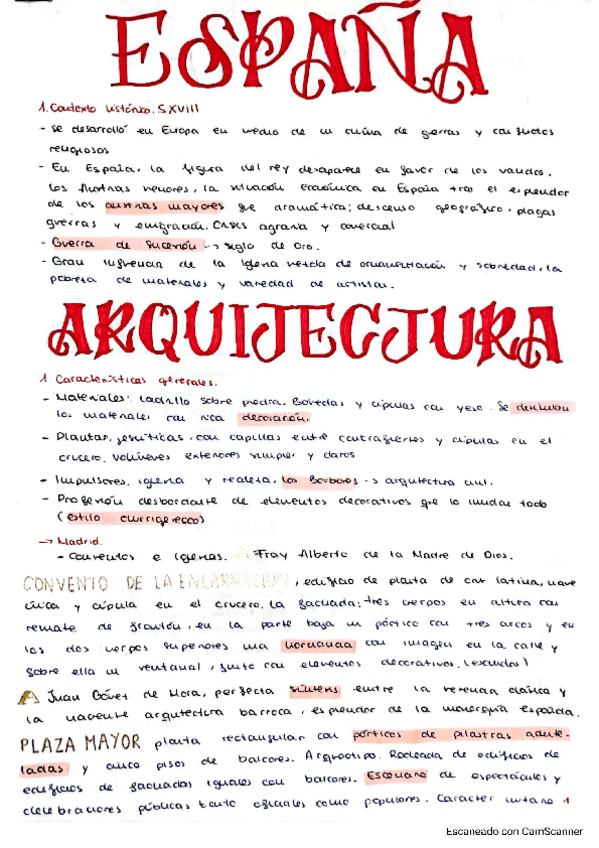 ESPAÑA
1. Contexto histórico. S XVIII
- Se desarrolló en Europa en medio de un clima de guerras y conflictos
religiosos
- En España, la figura del rey desaparece en favor de los validos.
Los Austrias menores, la situación económica en España tras el esplendor
de los austrias mayores fue dramática; descenso geográfico, plagas
guerras y emigración. Crisis agraria y comercial
- Guerra de Sucesión -> siglo de Oro.
- Gran influencia de la Iglesia mezcla de ornamentación y sobriedad, la
pobreza de materiales y variedad de artistas.
ARQUITECTURA
1. Características generales.
- Materiales: ladrillo sobre piedra. Bóvedas y cúpulas con yeso. Se
los materiales con rica decoración.
- Plantas, jesuíticas, con capillas entre contrafuertes y cúpulas en el
crucero. Volúmenes exteriores simples y claros
- Impulsores, iglesia y realeza, los Borbones -> arquitectura civil.
- Profusión desbordante de elementos decorativos que lo inundan todo
(estilo churrigeresco)
-> Madrid.
- Conventos e iglesias. A Fray Alberto de la Madre de Dios.
CONVENTO DE LA ENCARNACIÓN, edificio de planta de cruz latina, nave
única y cúpula en el crucero. La fachada; tres cuerpos en altura con
remate de frontón, en la parte baja un pórtico con tres arcos y en
los dos cuerpos superiores una hornacina con imagen en la calle y
sobre ella un ventanal, junto con elementos decorativos. (escudos)
A Juan Gómez de Mora, perfecta síntesis entre la herencia clásica y
la naciente arquitectura barroca, esplendor de la monarquía española.
PLAZA MAYOR planta rectangular con pórticos de pilastras adinte-
ladas y cinco pisos de balcones. Arquetipo. Rodeada de edificios de
edificios de fachadas iguales con balcones. Escenario de espectáculos y
celebraciones públicas tanto oficiales como populares. Carácter urbano 1
Escaneado con CamScanner